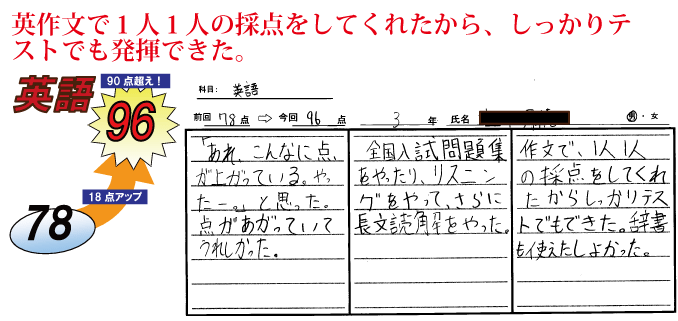 英作文で１人１人の採点をしてくれたから、しっかりテ
ストでも発揮できた。
90点超え！
英語
96
18点アップ
78
科目: 英語
前回 78 点 ⇨ 今回 96 点 3 年 氏名 男・女
「あれ、こんなに点
が上がっている。やっ
たー。」と思った。
点があがっていて
うれしかった。
全国入試問題集
をやったり、リスニン
グをやって、さらに
長文読解をやった。
作文で、1人1人
の採点をしてくれ
たからしっかりテス
トでもできた。辞書
も使えたしよかった。